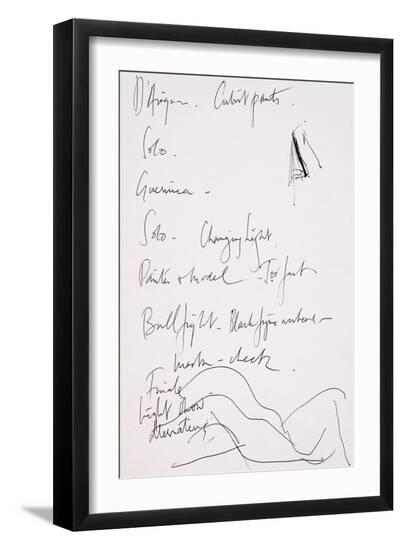 D'Avignon. Cubist pants.
Solo.
Guernica -
Solo - Changing light.
Painter & Model - Too fast
Bullfight - Black figure
mask - check.
Finale
Light show
alternating.